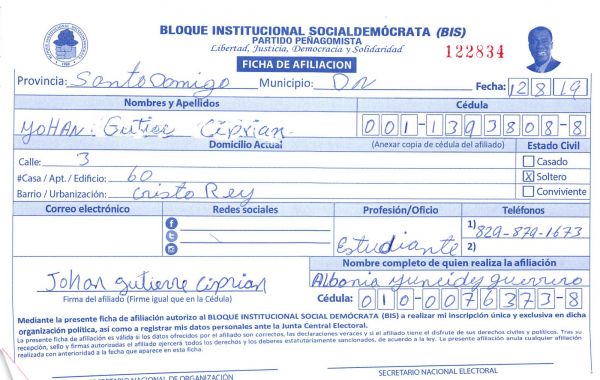 BLOQUE INSTITUCIONAL SOCIALDEMÓCRATA (BIS)
PARTIDO PEÑAGOMISTA
Libertad, Justicia, Democracia y Solidaridad
122834
FICHA DE AFILIACION
Provincia: Santo Domigo Municipio: DN Fecha: 12 8 19
Nombres y Apellidos Cédula
YOHAN Gutier Ciprian 001-1393808-8
Domicilio Actual (Anexar copia de cédula del afiliado) Estado Civil
Calle: 3 Casado
#Casa / Apt. / Edificio: 60 X Soltero
Barrio / Urbanización: Cristo Rey Conviviente
Correo electrónico Redes sociales Profesión/Oficio Teléfonos
1) 829-879-1673
Estudiante 2)
Nombre completo de quien realiza la afiliación
Johan gutierre Ciprian Albania yuneidy guerrero
Firma del afiliado (Firme igual que en la Cédula) Cédula: 010-0076373-8
Mediante la presente ficha de afiliación autorizo al BLOQUE INSTITUCIONAL SOCIAL DEMÓCRATA (BIS) a realizar mi inscripción única y exclusiva en dicha
organización política, así como a registrar mis datos personales ante la Junta Central Electoral.
La presente ficha de afiliación es válida si los datos ofrecidos por el afiliado son correctos, las declaraciones veraces y si el afiliado tiene el disfrute de sus derechos civiles y políticos. Tras su
recepción, sello y firmas autorizadas el afiliado ejercerá todos los derechos y los deberes estatutariamente sancionados, de acuerdo a la ley. La presente afiliación anula cualquier afiliación
realizada con anterioridad a la fecha que aparece en esta ficha.
SECRETARIO NACIONAL DE ORGANIZACIÓN SECRETARIO NACIONAL ELECTORAL